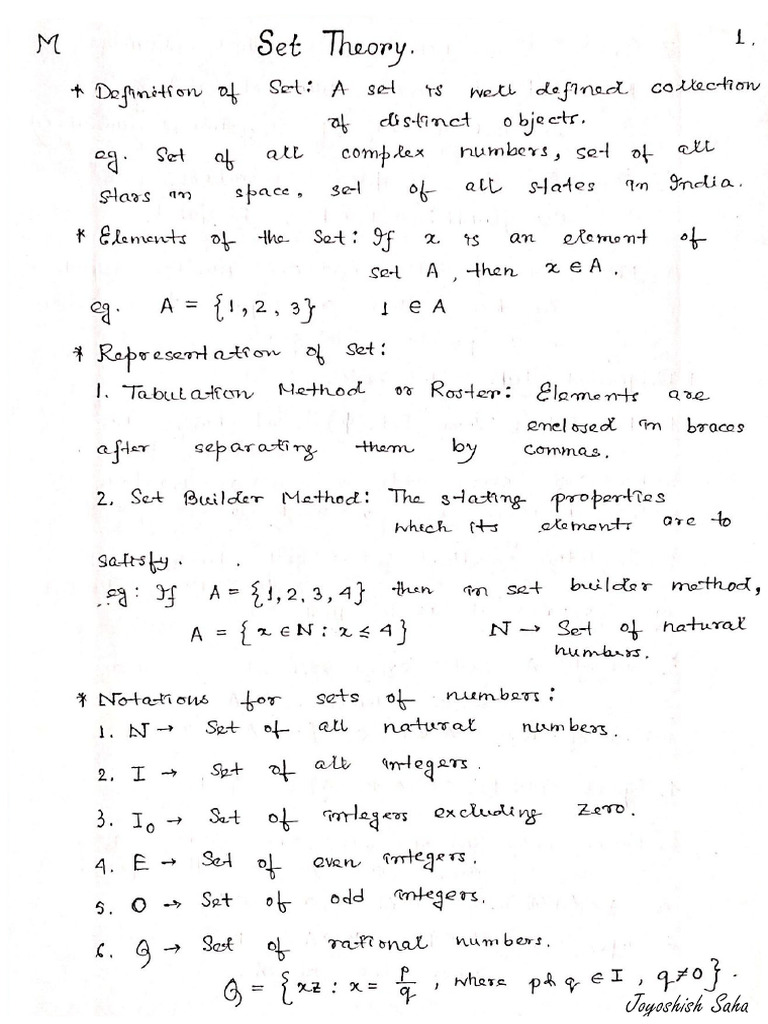 M Set Theory. 1.
* Definition of Set: A set is well defined collection
of distinct objects.
eg. Set of all complex numbers, set of all
stars in space, set of all states in India.
* Elements of the Set: If x is an element of
set A, then x ∈ A.
eg. A = {1, 2, 3} 1 ∈ A
* Representation of Set:
1. Tabulation Method or Roster: Elements are
enclosed in braces
after separating them by commas.
2. Set Builder Method: The stating properties
which its elements are to
satisfy.
eg: If A = {1, 2, 3, 4} then in set builder method,
A = {x ∈ N : x ≤ 4} N → Set of natural
numbers.
* Notations for sets of numbers:
1. N → Set of all natural numbers.
2. I → Set of all integers.
3. I₀ → Set of integers excluding zero.
4. E → Set of even integers.
5. O → Set of odd integers.
6. Q → Set of rational numbers.
Q = {xz : x = p/q, where p & q ∈ I, q ≠ 0}.
Joyoshish Saha